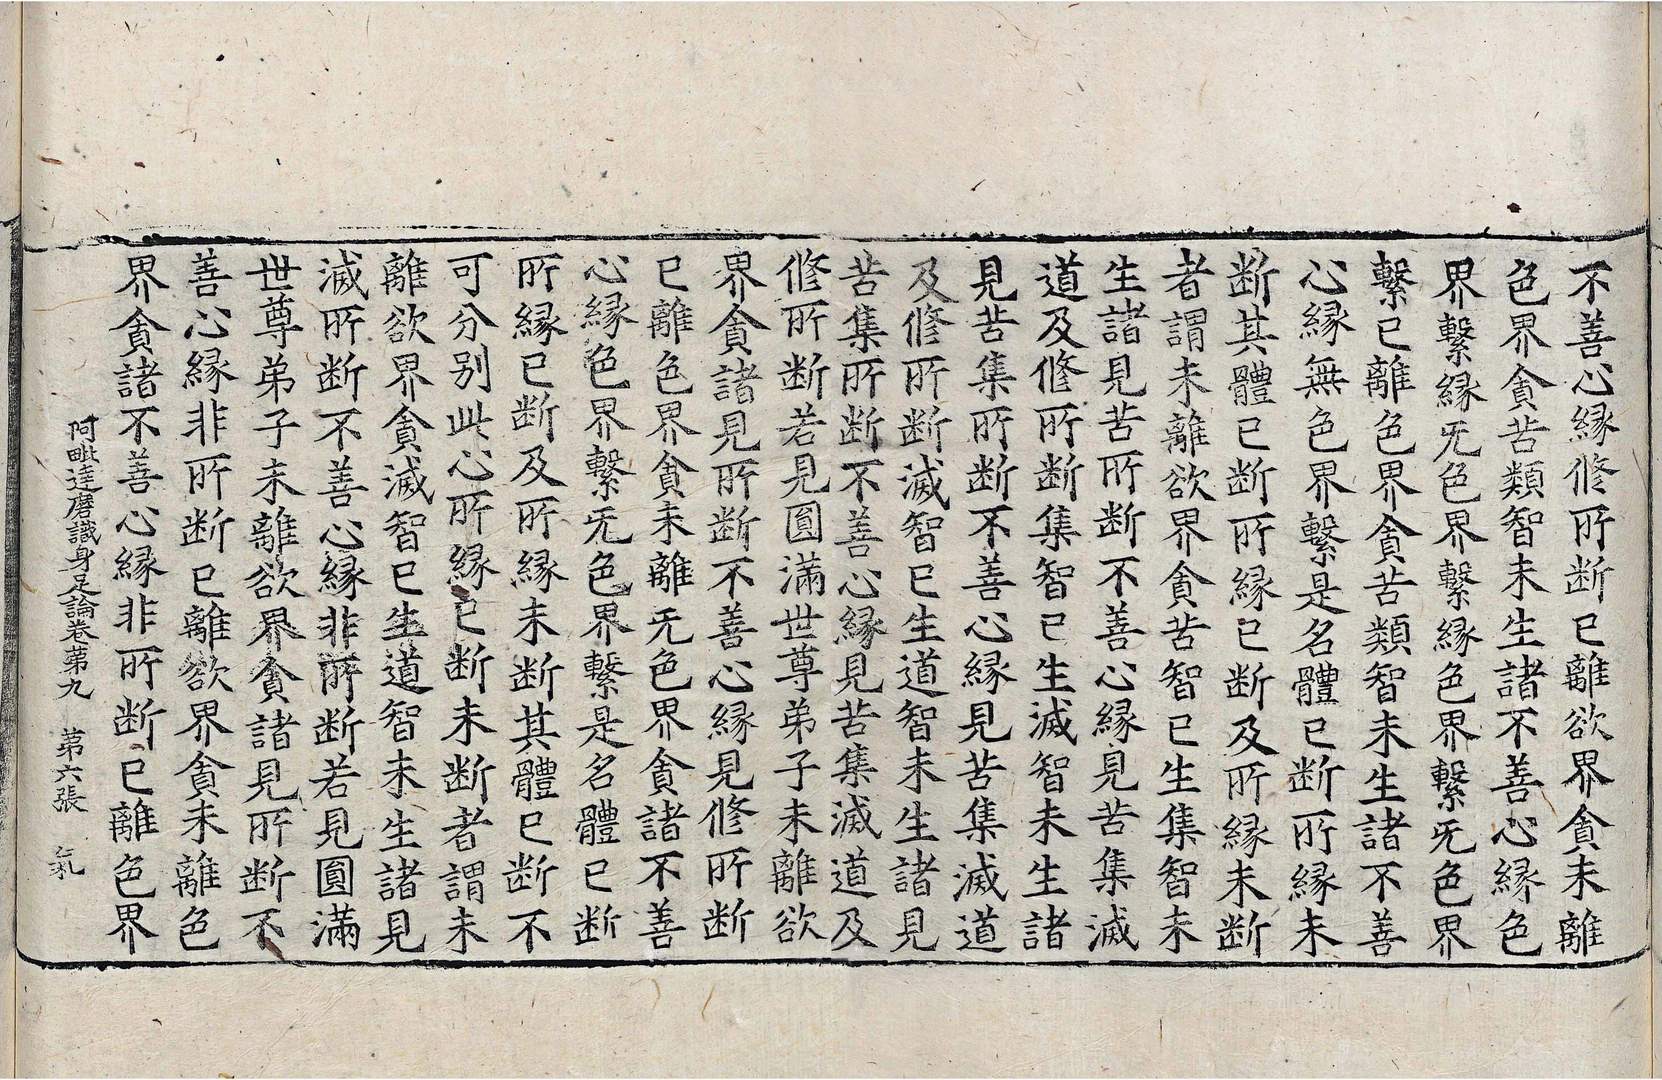 不善心縁修所断已離欲界貪未離
色界貪苦類智未生諸不善心縁色
界繫縁无色界繫縁色界繫无色界
繫已離色界貪苦類智未生諸不善
心縁無色界繫是名體已断所縁未
断其體已断所縁已断及所縁未断
者謂未離欲界貪苦智已生集智未
生諸見苦所断不善心縁見苦集滅
道及修所断集智已生滅智未生諸
見苦集所断不善心縁見苦集滅道
及修所断滅智已生道智未生諸見
苦集所断不善心縁見苦集滅道及
修所断若見圓滿世尊弟子未離欲
界貪諸見所断不善心縁見修所断
已離色界貪未離无色界貪諸不善
心縁色界繫无色界繫是名體已断
所縁已断及所縁未断其體已断不
可分别此心所縁已断未断者謂未
離欲界貪滅智已生道智未生諸見
滅所断不善心縁非所断若見圓滿
世尊弟子未離欲界貪諸見所断不
善心縁非所断已離欲界貪未離色
界貪諸不善心縁非所断已離色界
阿毗達磨識身足論卷苐九　苐六張　氣